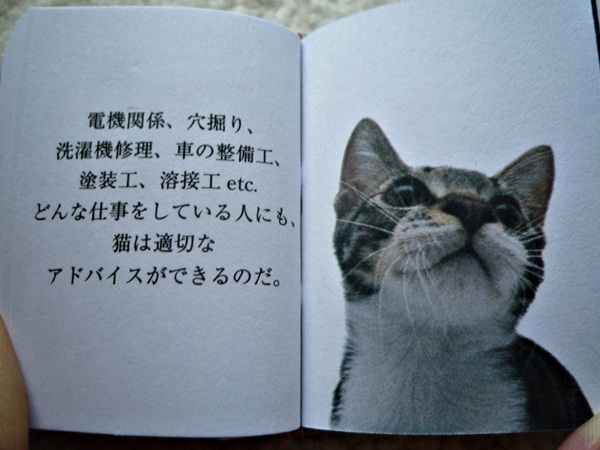 電機関係、穴掘り、
洗濯機修理、車の整備工、
塗装工、溶接工 etc.
どんな仕事をしている人にも、
猫は適切な
アドバイスができるのだ。